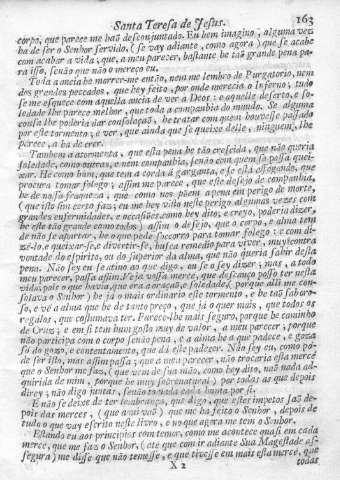 Santa Teresa de Jesus. 163
corpo, que parece me haõ desconjuntado. Eu bem imagino, alguma vez
ha de ser o Senhor servido, (se vay adiante, como agora) que se acabe
com acabar a vida; que, a meu parecer, bastante he taõ grande pena pa-
ra isso, senaõ que naõ o mereço eu.
Toda a ancia he morrer-me entaõ, nem me lembro de Purgatorio, nem
dos grandes peccados, que hey feito, por onde merecia o Inferno; tudo
se me esquece com aquella ancia de ver a Deos: e aquelle deserto, e so-
ledade lhe parece melhor, que toda a companhia do mundo. Se alguma
cousa lhe poderia dar consolaçaõ, he tratar com quem houvesse passado
por este tormento; e ver, que ainda que se queixe delle, ninguem, lhe
parece, a ha de crer.
Tambem a atormenta, que esta pena he taõ crescida, que naõ queria
soledade, como outras, e nem companhia, senaõ com quem se possa quei-
xar. He como hum, que tem a corda á garganta, e se está afogando, que
procura tomar folego; assim me parece, que este desejo de companhia,
he de nossa fraqueza; que como nos põem a pena em perigo de morte,
( que isto sim certo faz; eu me hey visto neste perigo algumas vezes com
grandes enfermidades, e occasiões, como hey dito, e creyo, poderia dizer,
he este taõ grande como todos ) assim o desejo, que o corpo, e alma tem
de naõ se apartar, he o que pede soccorro para tomar folego; e com di-
zê-lo, e queixar-se, e divertir-se, busca remedio para viver, muy contra
vontade do espirito, ou do superior da alma, que naõ queria sahir desta
pena. Naõ sey eu se atino ao que digo, ou se o sey dizer; mas, a todo
meu parecer, passa assim. Veja vossa mercê, que descanço posso ter nesta
vida; pois o que havia, que era a oraçaõ, e soledade ( porque alli me con-
solava o Senhor ) he já o mais ordinario este tormento, e he taõ saboro-
so, e vê a alma que he de tanto preço, que já o quer mais, que todos os
regalos, que costumava ter. Parece-lhe mais seguro, porque he caminho
de Cruz; e em si tem hum gosto muy de valor, a meu parecer; porque
naõ participa com o corpo senaõ pena, e a alma he a que padece, e goza
só do gozo, e contentamento, que dá este padecer. Naõ sey eu, como pó-
de ser isto, mas assim passa; que a meu parecer, naõ trocaria esta mercê
que o Senhor me faz, ( que vem de sua maõ, como hey dito, naõ nada ad-
quirida de mim, porque he muy sobrenatural ) por todas as que depois
direy; naõ digo juntas, senaõ tomada cada huma por si.
E naõ se deixe de ter lembrança, que digo, que estes impetos saõ de-
pois das merces, ( que aqui vaõ ) que me ha feito o Senhor, depois de
tudo o que vay escrito neste livro, e no que agora me tem o Senhor.
Estando eu aos principios com temor, como me acontece quasi em cada
mercê, que me faz o Senhor, ( até que com ir adiante Sua Magestade as-
segura ) me disse que naõ temesse, e que tivesse em mais esta mercê, que
X 2 todas